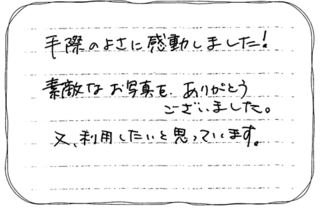 手際のよさに感動しました!
素敵なお写真を、ありがとう
ございました。
又、利用したいと思っています。